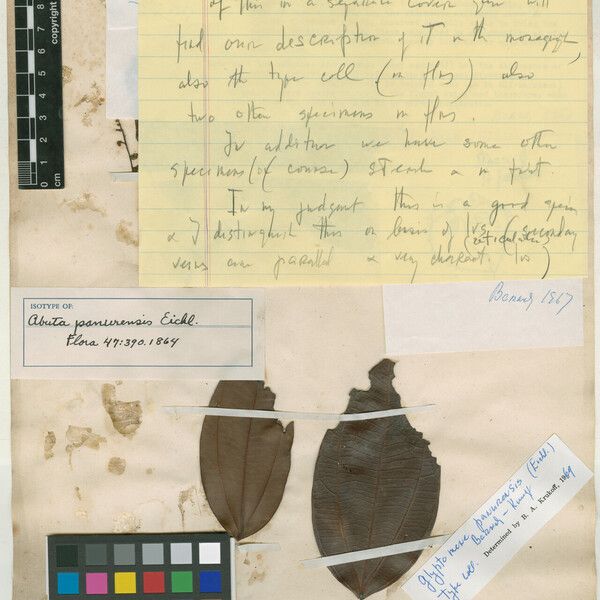 of this in a separate cover you will
find our description of it in the monograph,
also the type coll (in flrs) also
two other specimens in flrs.
In addition we have some other
specimens (of course) sterile & in fruit.
In my judgment this is a good species
& I distinguish this on basis of lvs (secondary
veins are parallel & very charact. lvs)
(reticulate)
copyright
cm
Barneby 1967
ISOTYPE OF:
Abuta panurensis Eichl.
Flora 47:390.1864
Glyptomene panurensis (Eichl.)
Barneby - Kruk
type coll.
Determined by B. A. Krukoff, 1969